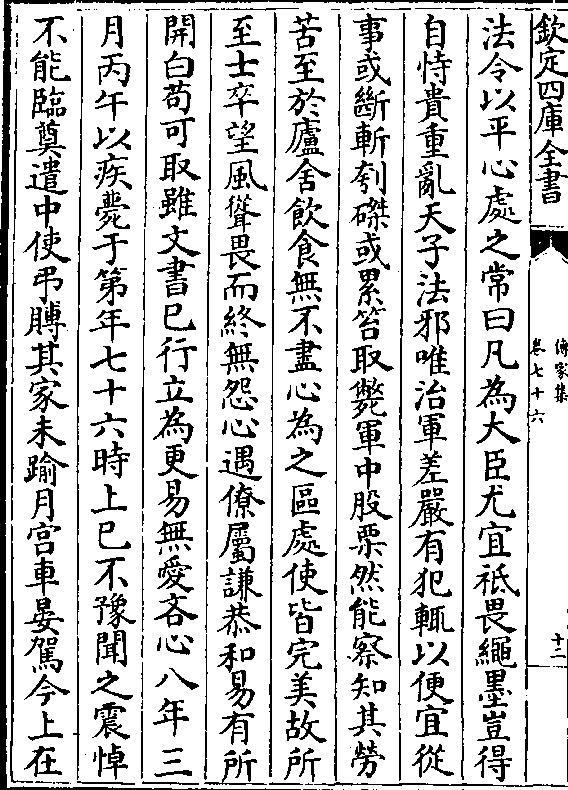 欽定四庫全書
傳家集
卷七十六
十二
法令以平心處之常曰凡為大臣尤宜祗畏繩墨豈得
自恃貴重亂天子法邪唯治軍差嚴有犯輒以便宜從
事或斷斬刳磔或累笞取斃軍中股栗然能察知其勞
苦至於廬舍飲食無不盡心為之區處使皆完美故所
至士卒望風聳畏而終無怨心遇僚屬謙恭和易有所
開白苟可取雖文書已行立為更易無愛吝心八年三
月丙午以疾薨于第年七十六時上已不豫聞之震悼
不能臨奠遣中使弔賻其家未踰月宫車晏駕今上在